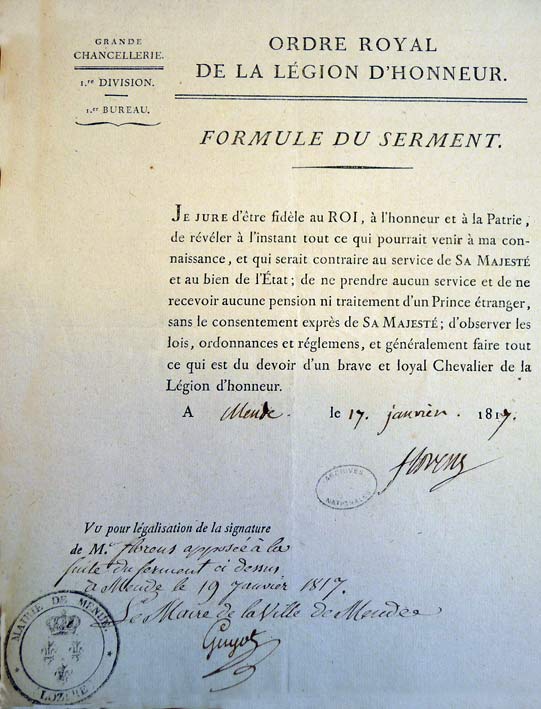 GRANDE
CHANCELLERIE.
1.re DIVISION.
1.er BUREAU.
ORDRE ROYAL
DE LA LÉGION D'HONNEUR.
FORMULE DU SERMENT.
JE JURE d'être fidèle au ROI, à l'honneur et à la Patrie,
de révéler à l'instant tout ce qui pourrait venir à ma con-
naissance, et qui serait contraire au service de SA MAJESTÉ
et au bien de l'État; de ne prendre aucun service et de ne
recevoir aucune pension ni traitement d'un Prince étranger,
sans le consentement exprès de SA MAJESTÉ; d'observer les
lois, ordonnances et réglemens, et généralement faire tout
ce qui est du devoir d'un brave et loyal Chevalier de la
Légion d'honneur.
A Mende. le 17. janvier. 1817.
florens
ARCHIVES
NATIONALES
VU pour légalisation de la signature
de M.r florens apposée à la
suite du serment ci dessus
à Mende le 19 Janvier 1817.
Le Maire de la Ville de Mende
Guyot
MAIRIE DE MENDE.
LOZÈRE